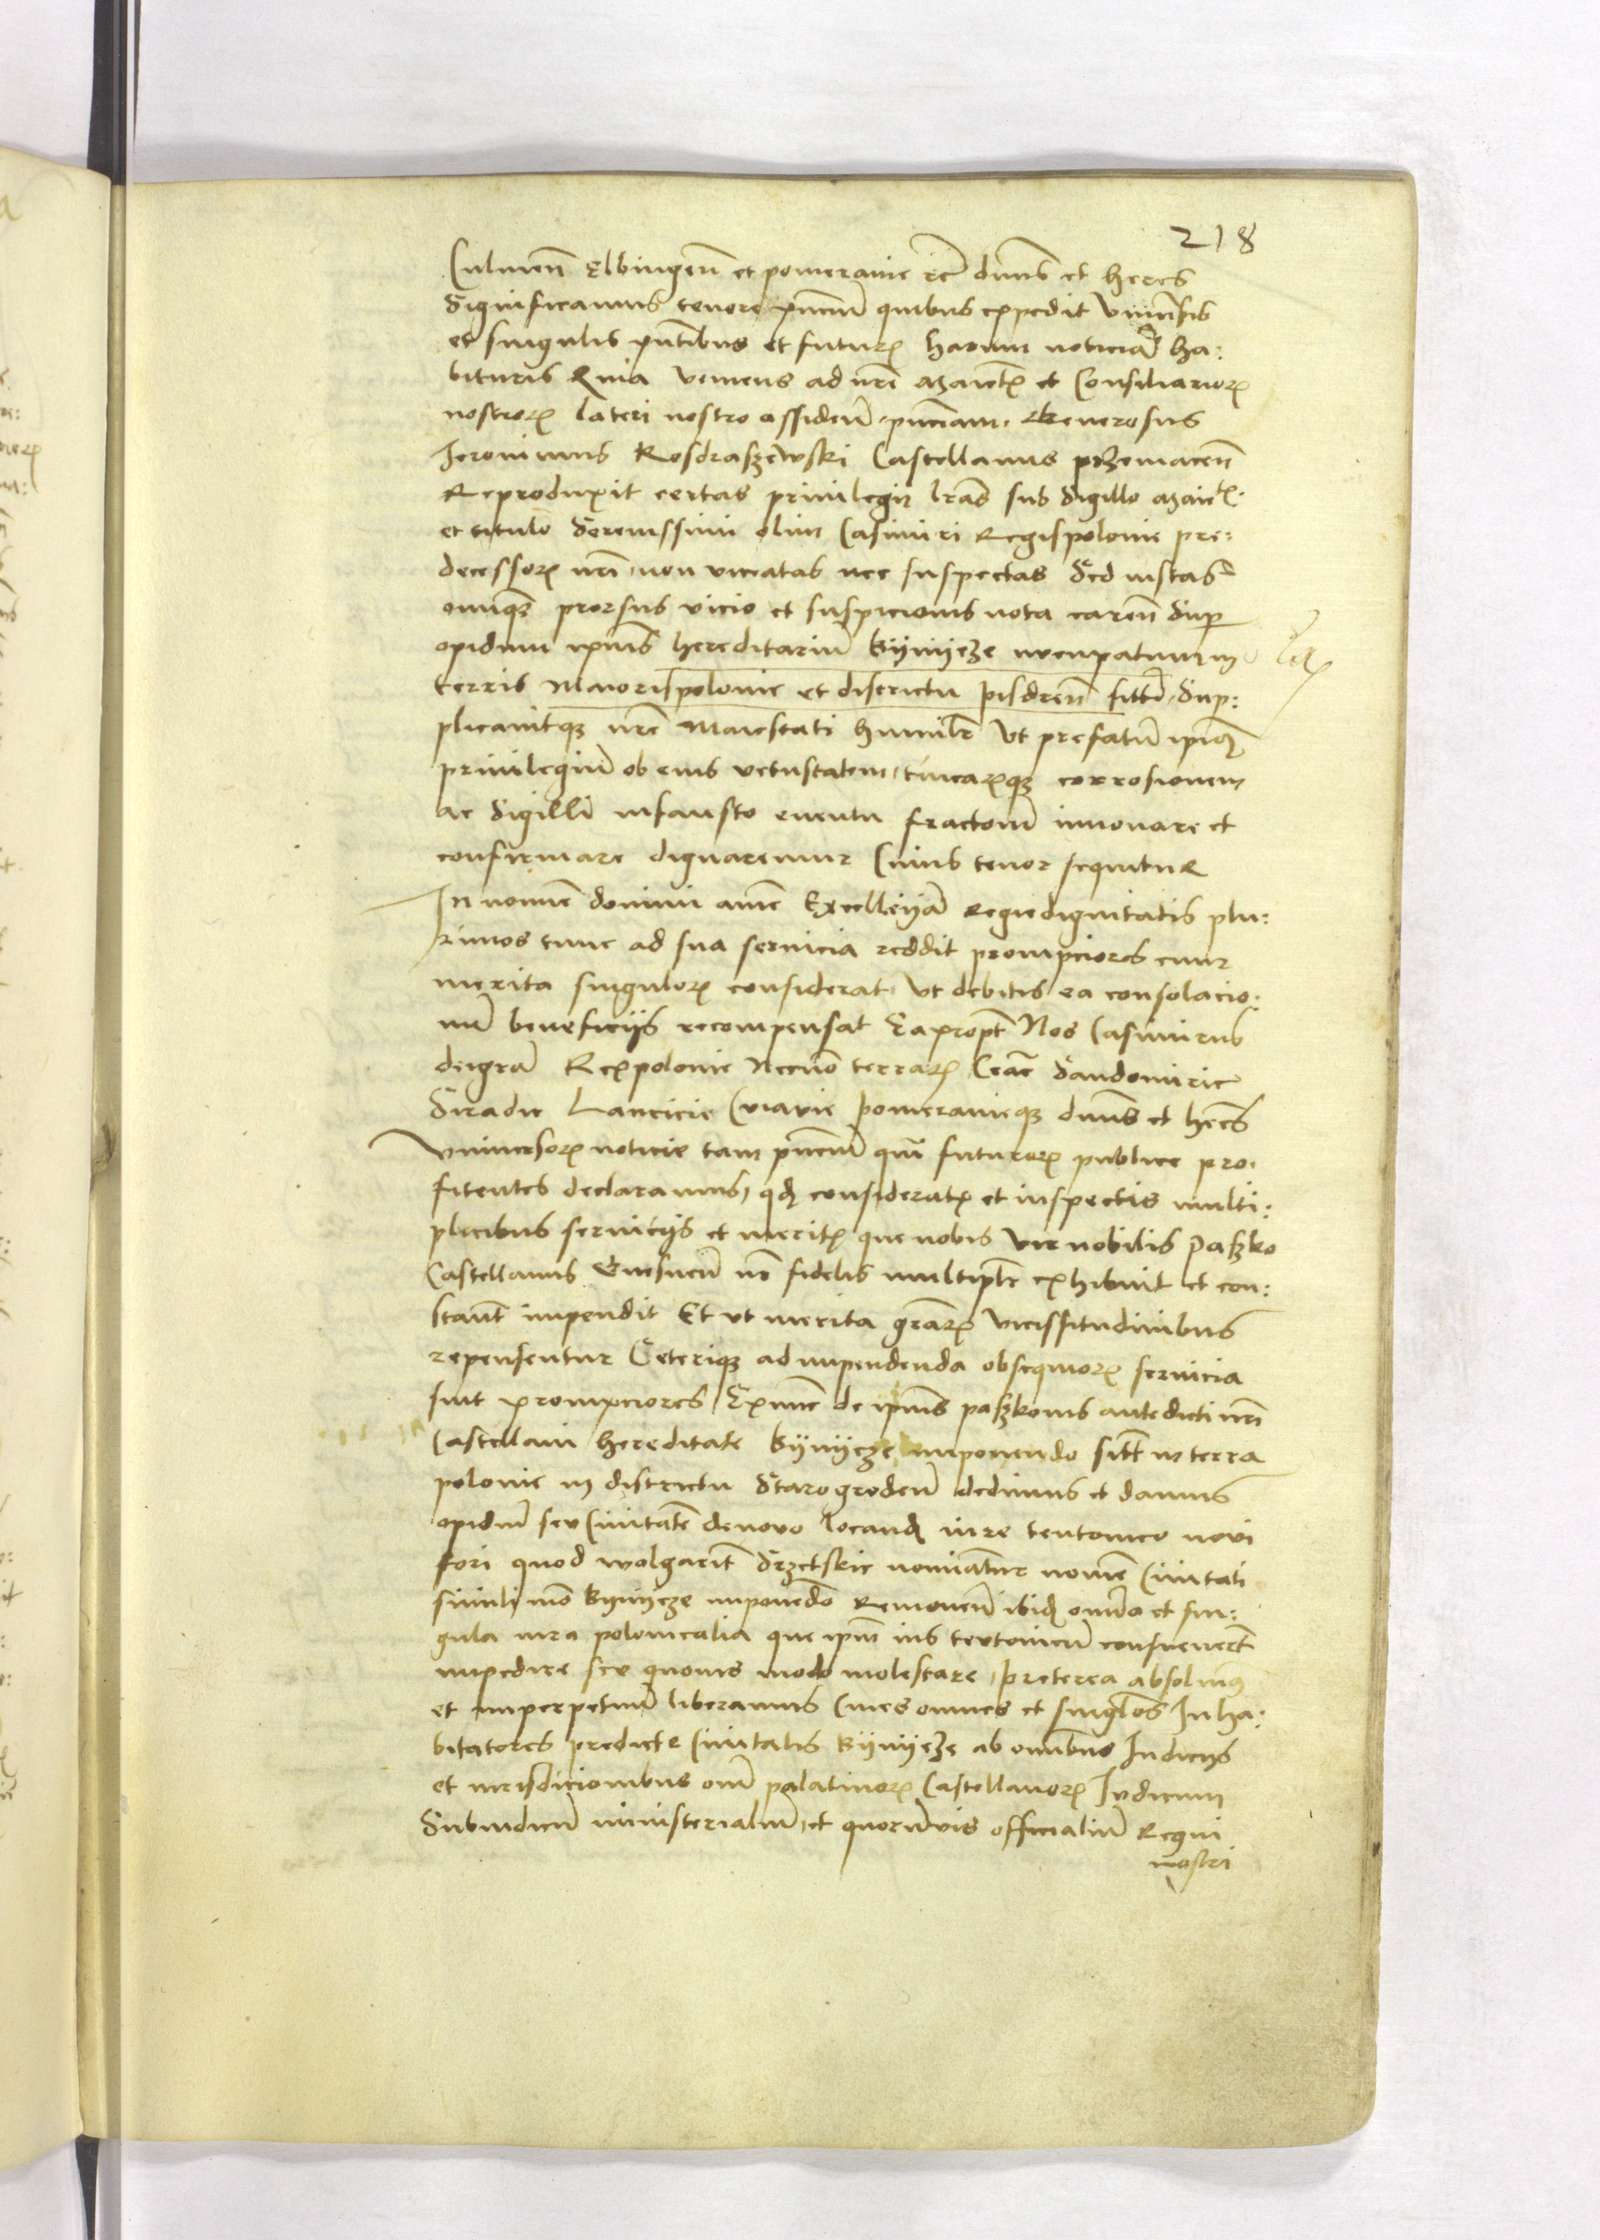 218
Culmen̄ Elbingen̄ et pomeranie et̄c dn̄us et heres
Significamus tenore pn̄cium quibus expedit Vniuersis
et singulis pn̄tibus et futuris harum noticiam ha:
bituris Quia veniens ad nr̄e Maiestatis et Consiliariorum
nostrorum lateri nostro assiden̄ pn̄ciam Generosus
Ieronimus Rosdraszewski Castellanus przemacen̄
Reproduxit certas priuilegij lr̄as sub Sigillo Maiestatis
et titulo Serenissimi olim Casimiri Regis polonie pre:
decessoris nr̄i non viciatas nec suspectas Sed iustas
omniqꝫ prorsus vicio et suspicionis nota caren̄ Sup
opidum ipius hereditariū Kÿnÿcze nuncupatum in
terris Maioris polonie et districtu pisdren̄ sitt̄ Sup:
plicauitqꝫ nr̄e Maiestati humilr̄ Vt prefatū ipius
priuilegiū ob eius vetustatem tinearumqꝫ corrosionem
ac Sigilli infausto euentu fractom̄ innouare et
confirmare dignaremur Cuius tenor sequitur
In nomie domini ame Excellēcia regie dignitatis plu:
rimos tunc ad sua seruicia reddit prompciores cum
merita singulorum considerat Vt debitis ea consolacio:
nū beneficijs recompensat Eapropt̄ Nos Casimirus
dei gra Rex polonie Necno terrarum Crac̄ Sandomirie
Siradie Lancicie Cuiauie pomeranieqꝫ dn̄us et heres
Vniuersorum noticie tam pn̄cium quā futurorum publice pro:
fitentes declaramus, qd consideratis et inspectis multi:
plicibus seruicijs et meritis que nobis vir nobilis Paszko
Castellanus Gnesnen̄ nr̄ fidelis multiplr̄ exhibuit et con:
stant̄ impendit Et vt merita gr̄arum vicissitudinibus
repensentur Ceteriqꝫ ad impendenda obsequiorum seruicia
sint prompciores Exnunc de ipius paszkonis antedicti nr̄i
Castellani hereditate Kÿnÿcze imponendo sitt̄ in terra
polonie in districtu Starogroden̄ dedimus et damus
opidū seu Ciuitatē denovo locand iure teutonico novi
fori quod wolgarit̄ Srzetskie nominatur nomē Ciuitati
simili mo Kynÿcze imponēdo Remouen̄ ibid omia et sin:
gula iura polonicalia que ipm ius teutonicū consueuert̄
impedire seu quouis modo molestare, preterea absoluimus
et imperpetuū liberamus Ciues omnes et singulos Inha:
bitatores predicte Ciuitatis Kÿnÿcze ab omibus Iudicijs
et iurisdicionibus omī palatinorum Castellanorum Iudicum
Subiudicū ministerialiū, et quorūvis officialiū Regni
nostri